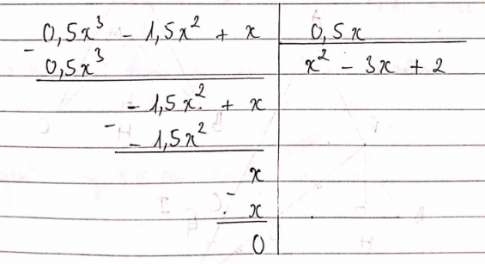 0,5x³ - 1,5x² + x | 0,5x
- 0,5x³ | x² - 3x + 2
- 1,5x² + x
- - 1,5x²
x
- x
0